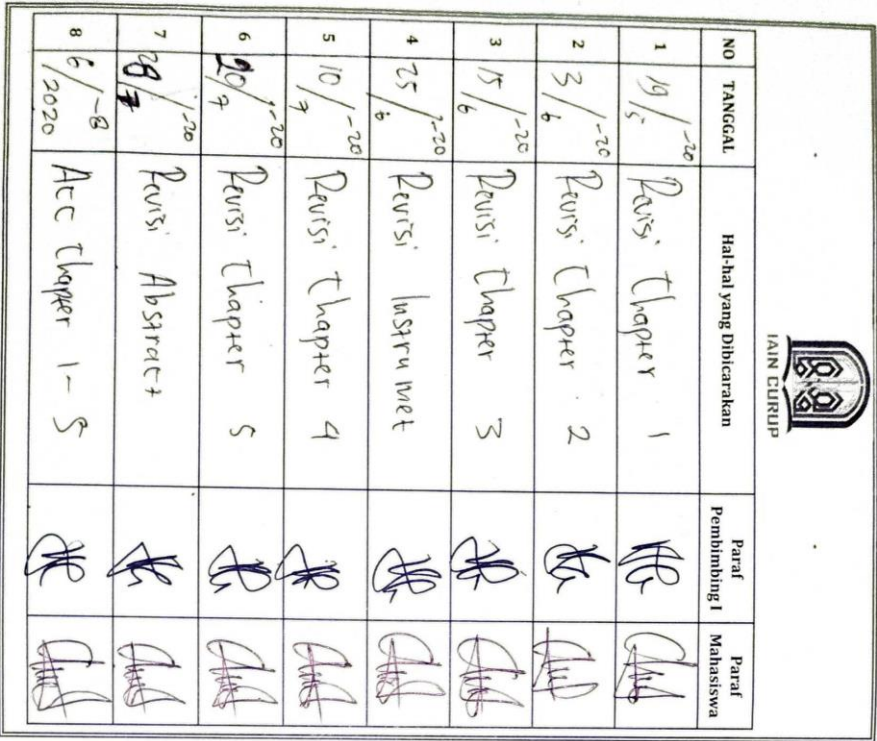 IAIN CURUP
NO TANGGAL Hal-hal yang Dibicarakan Paraf Pembimbing I Paraf Mahasiswa
1 19/5 -20 Revisi Chapter 1
2 3/6 -20 Revisi Chapter 2
3 15/6 -20 Revisi Chapter 3
4 25/6 -20 Revisi Instrumet
5 10/7 -20 Revisi Chapter 4
6 20/7 -20 Revisi Chapter 5
7 28/7 -20 Revisi Abstract
8 6/-8 2020 Acc Chapter 1-5